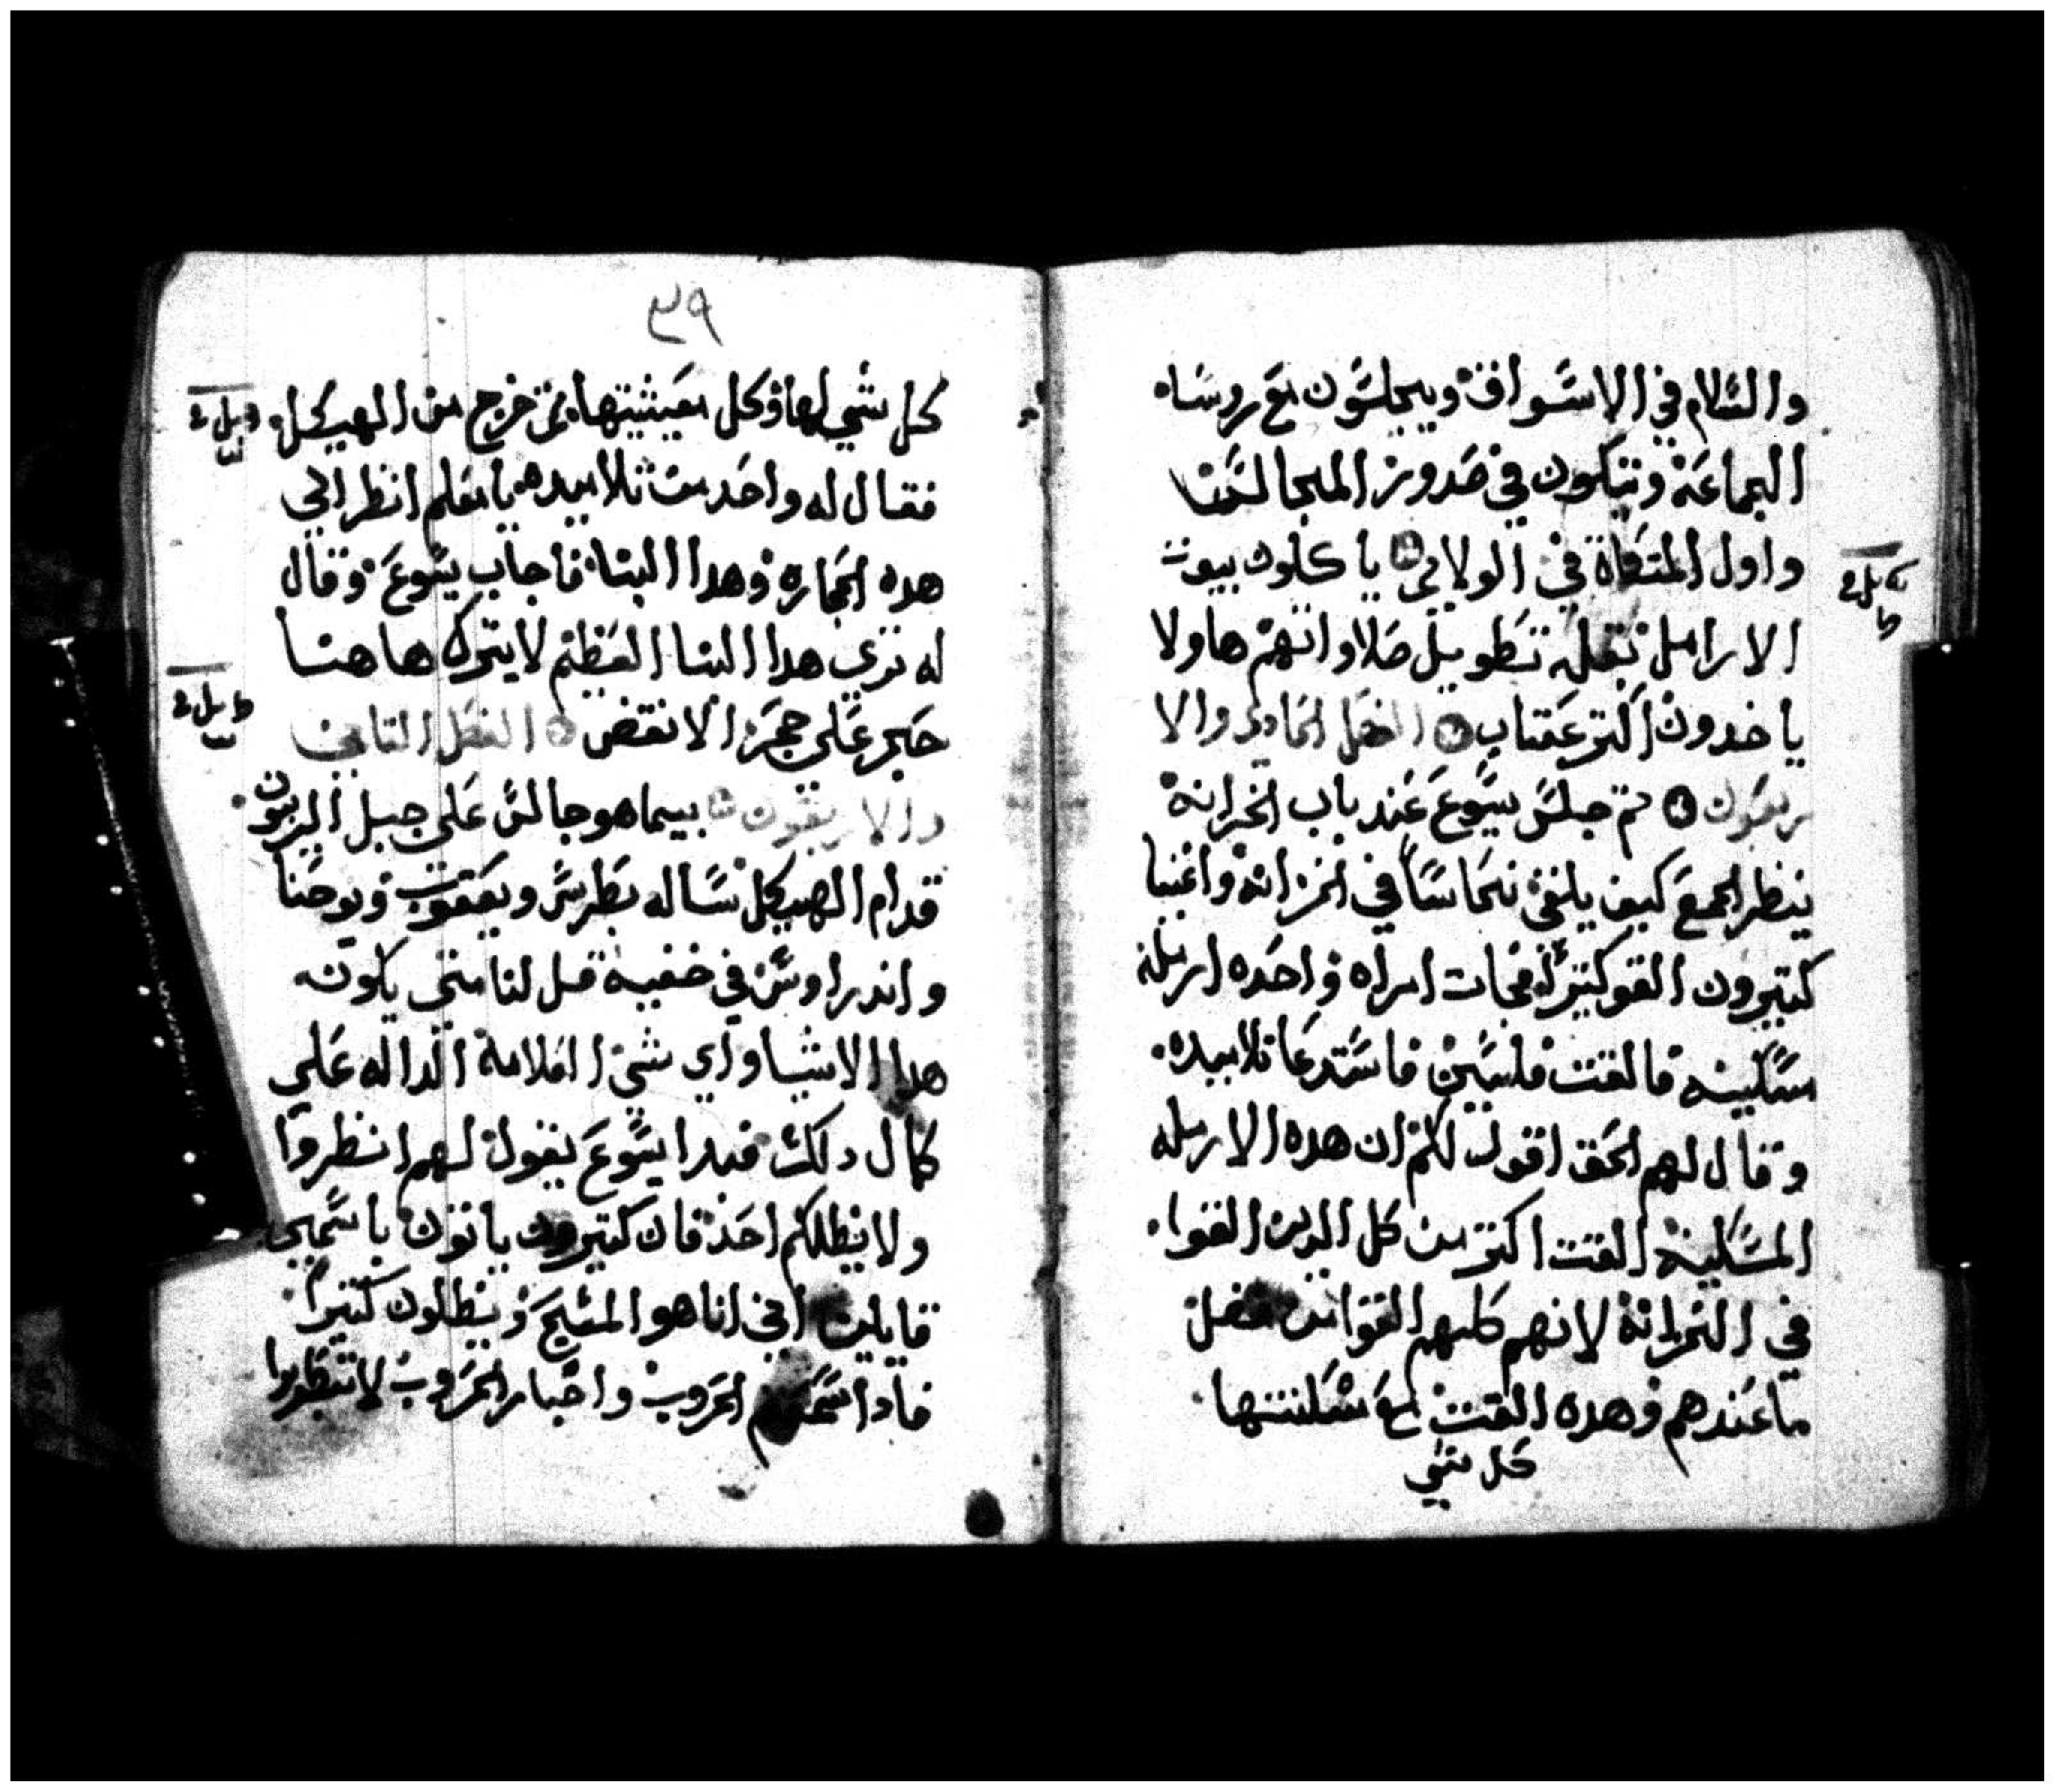 والسلام في الاسواق ويجلسون مع روساه
الجماعة ويتكون في صدور المجالس
واول المتكاة في الولايم ياكلون بيوت
الارامل بعلة تطويل صلاواتهم هاولا
ياخدون اكتر عقاب الفصل الحادي والا
ربعون تم جلس يسوع عند باب الخزانة
ينظر الجمع كيف يلقى نحاساً في الخزانة واغنيا
كتيرون القو كتيراً فجات امراه واحده ارملة
مسكينه فالقت فلسين فاستدعا تلاميده
وقال لهم الحق اقول لكم ان هده الارمله
المسكينة القت اكتر من كل الدين القوا
في الخزانة لانهم كلهم القوا من فضل
ما عندهم وهده القت مع مسكنتها
كل شي
٣٩
كل شي لها وكل معيشتها تم خرج من الهيكل
فقال له واحد من تلاميده يا معلم انظر الي
هده الحجاره وهدا البنا فاجاب يسوع وقال
له تري هدا البنا العظيم لا يترك هاهنا
حجر على حجر الا نقض الفصل التاني
والاربعون بيما هو جالس على جبل الزيتون
قدام الهيكل ساله بطرس ويعقوب ويوحنا
واندراوس في خفية قل لنا متي يكون
هدا الاشيا واي شي العلامة الداله علي
كمال دلك فبدا يسوع يقول لهم انظروا
ولا يضلكم احد فان كتيرون ياتون باسمي
قايلين اني انا هو المسيح ويضلون كتيراً
فادا سمعتم الحروب واخبار الحروب لا تنظروا